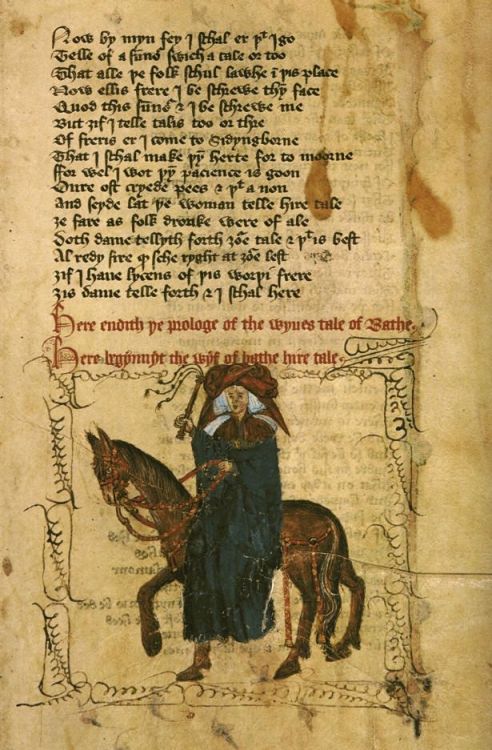 Now by myn fey I schal er þᵗ I go
Telle of a sūnō swich a tale or too
That alle þe folk schul lawhe ī þis place
Now ellis frere I be schrewe thy face
Quod this sūnō & I be schrewe me
But ȝif I telle talis too or thre
Of freris er I come to Sidyngborne
That I schal make þȳ herte for to moorne
ffor wel I wot þȳ pacience is goon
Oure ost cryede pees & þᵗ a non
And seyde lat þe woman telle hire tale
ȝe fare as folk dronke were of ale
Doth dame tellyth forth ȝō tale & þᵗ is best
Al redy sire qͩ sche ryght at ȝō lest
ȝif I haue lycens of þis worþi frere
ȝis dame telle forth & I schal here
Here endith þe prologe of the wyues tale of Bathe
Here begynnyþ the wyf of bathe hire tale